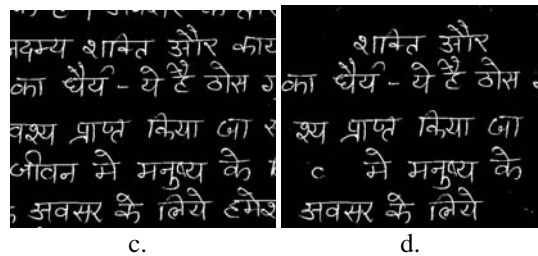 अदम्य शक्ति और
का धैर्य - ये है ठोस
वश्य प्राप्त किया जा
जीवन मे मनुष्य के
अवसर के लिये हमेश
c.
शक्ति और
का धैर्य - ये है ठोस
श्य प्राप्त किया जा
c मे मनुष्य के
अवसर के लिये
d.